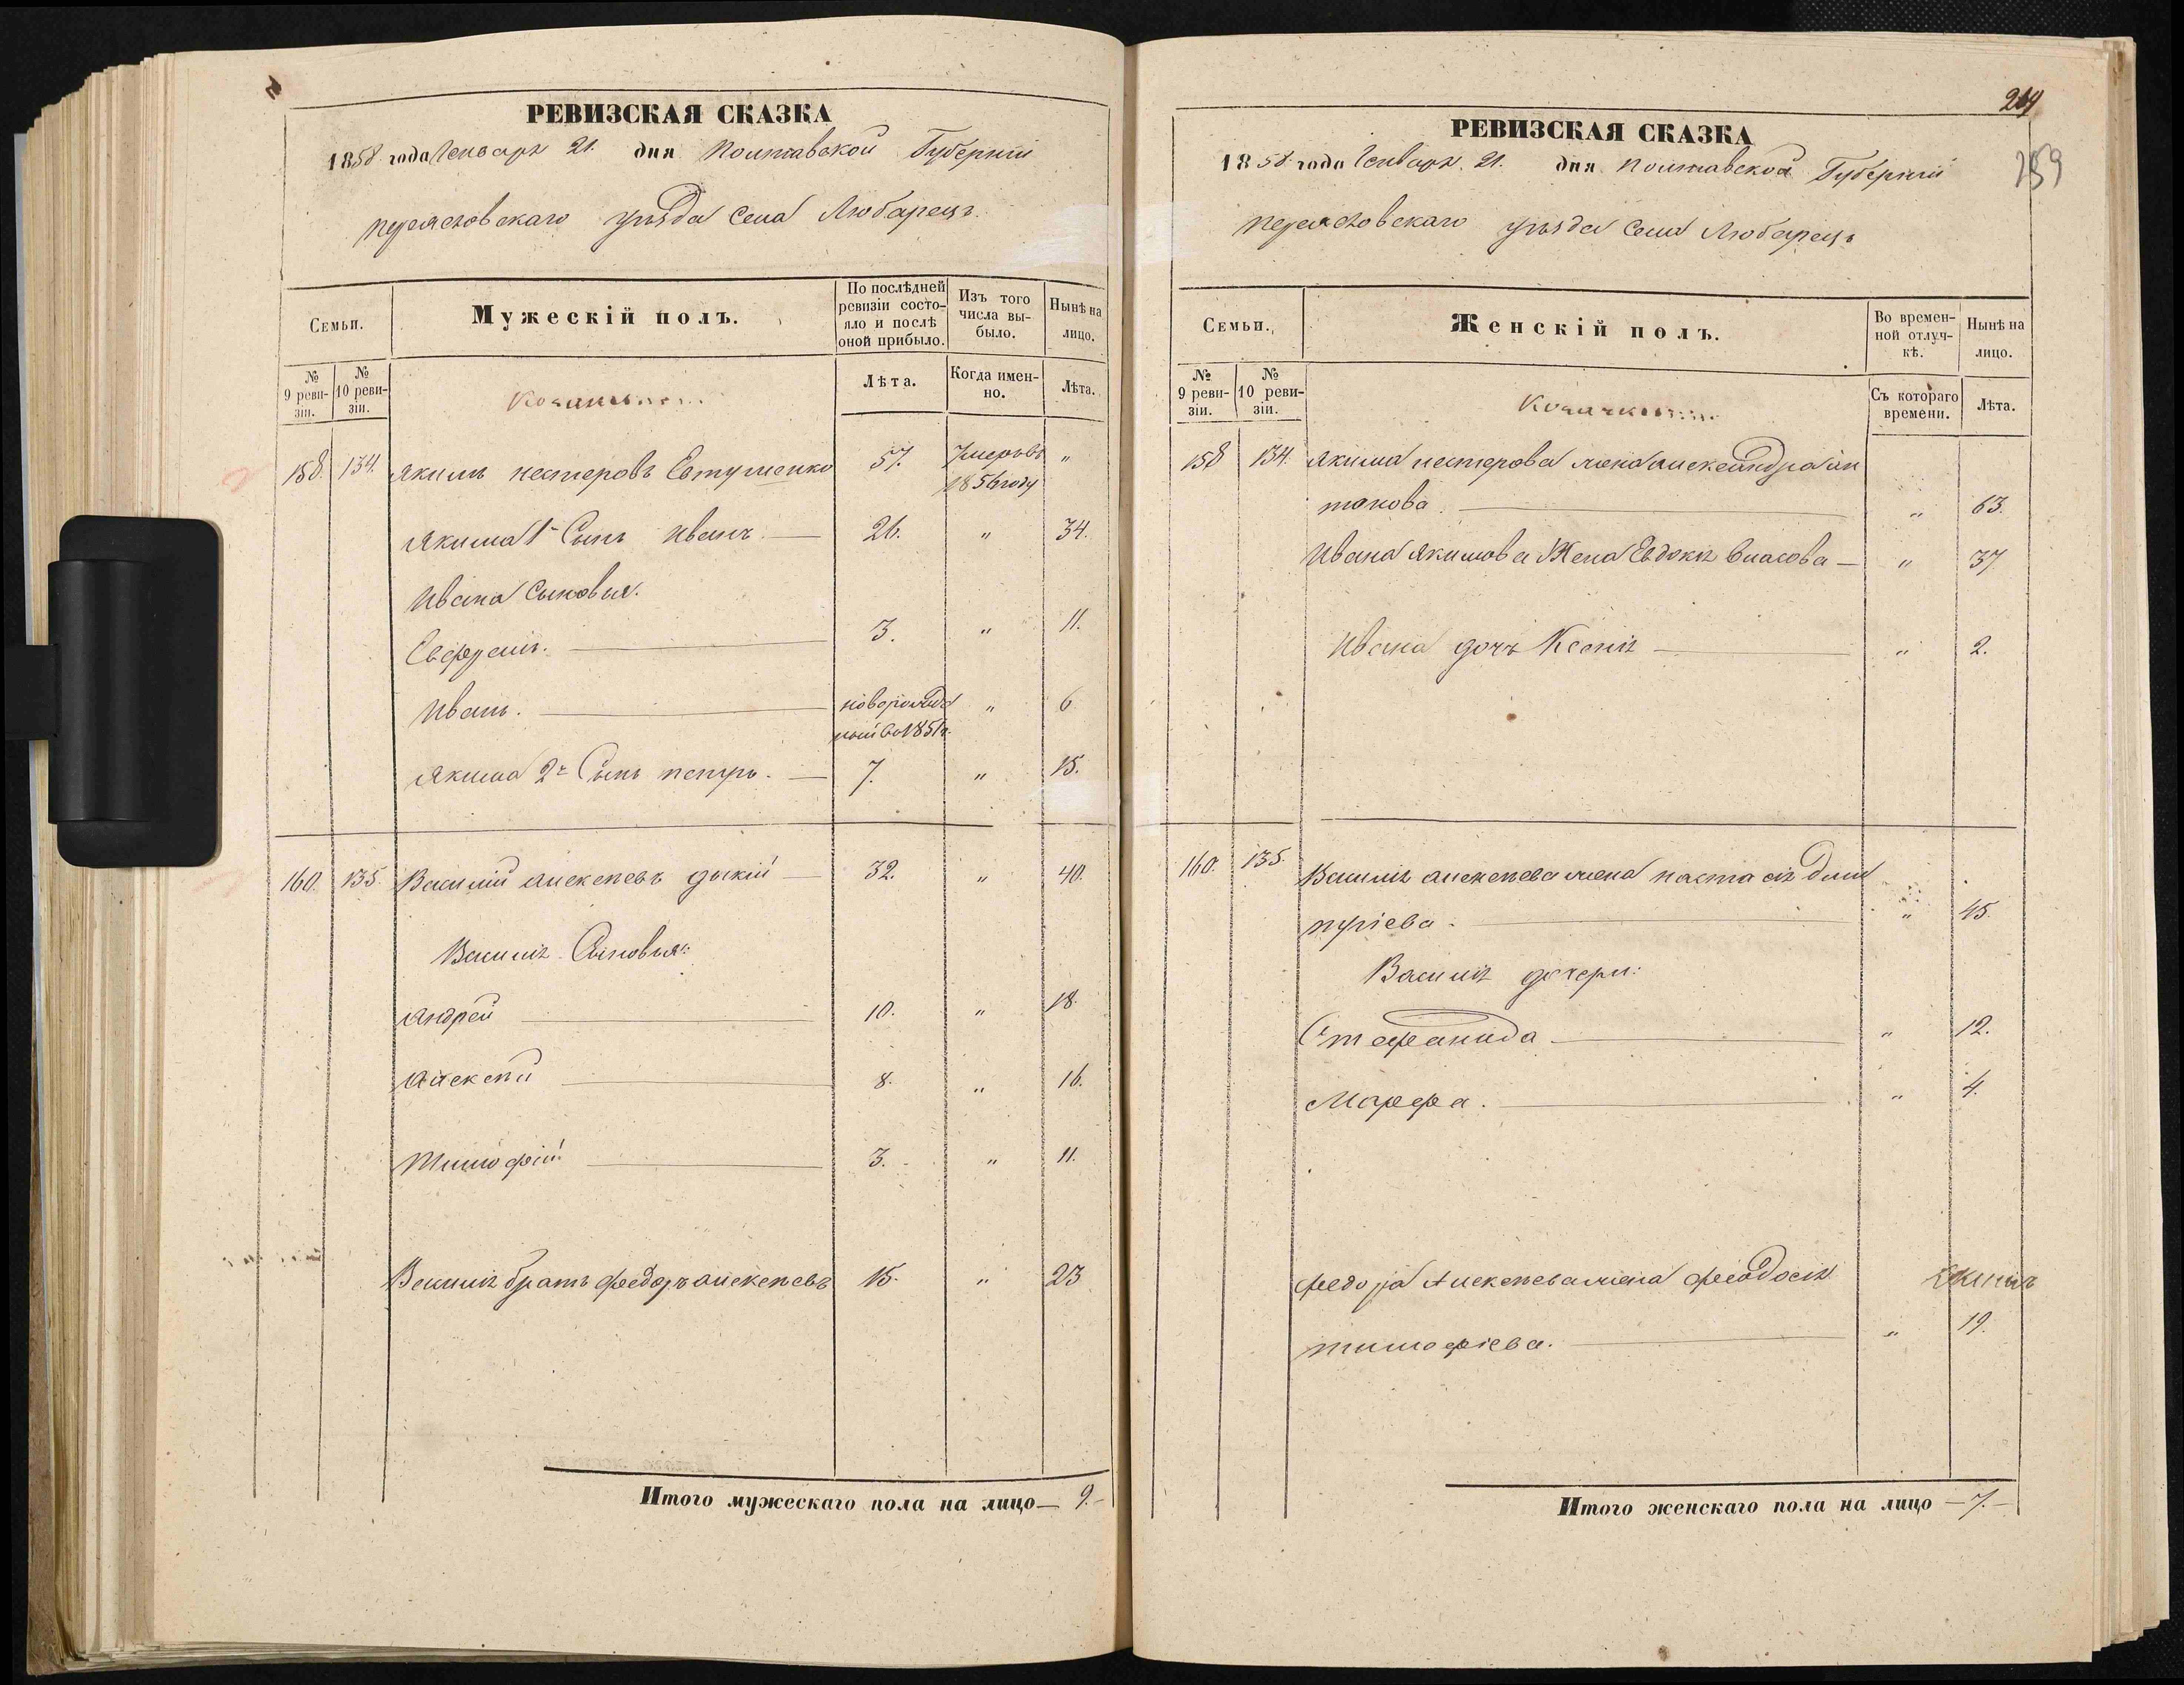 РЕВИЗСКАЯ СКАЗКА
1858 года Генваря 21. дня Полтавской Губерніи
переяславскаго уѣзда Села Любарецъ.
Семьи.
Мужескій полъ.
По послѣдней ревизіи состояло и послѣ оной прибыло.
Изъ того числа выбыло.
Нынѣ на лицо.
№ 9 ревизіи.
№ 10 ревизіи.
Лѣта.
Когда именно.
Лѣта.
158. 134. Якимъ нестеровъ Евтушенко 57. Умеръ въ 1856 году "
Якима 1й Сынъ Иванъ. — 26. " 34.
Ивана Сыновья.
Евфремъ. — 3. " 11.
Иванъ. — новорожденный въ 1851 г. " 6
Якима 2й Сынъ петръ. — 7. " 15.
160. 135. Василій алексѣевъ дыкій — 32. " 40.
Василія Сыновья:
Андрей — 10. " 18.
Алексѣй — 8. " 16.
Тимофій — 3. " 11.
Василія братъ федоръ алексѣевъ 15. " 23
Итого мужескаго пола на лицо — 9. –
259
РЕВИЗСКАЯ СКАЗКА
1858 года Генваря. 21. дня Полтавской Губерніи
переяславскаго уѣзда Села Любарецъ
Семьи.
Женскій полъ.
Во временной отлучкѣ.
Нынѣ на лицо.
№ 9 ревизіи.
№ 10 ревизіи.
Съ котораго времени.
Лѣта.
158 134. Якима нестерова жена александра ан
тонова. — " 63.
Ивана Якимова Жена Евдокія Власова — " 37
Ивана дочь Ксенія — " 2.
160. 135. Василія алексѣева жена настасія дми
тріева. — " 45.
Василія дочери:
Стефанида — " 12.
Марфа. — " 4.
федора Алексѣева жена феодосія
тимофіева. — " 19.
Итого женскаго пола на лицо — 7. –